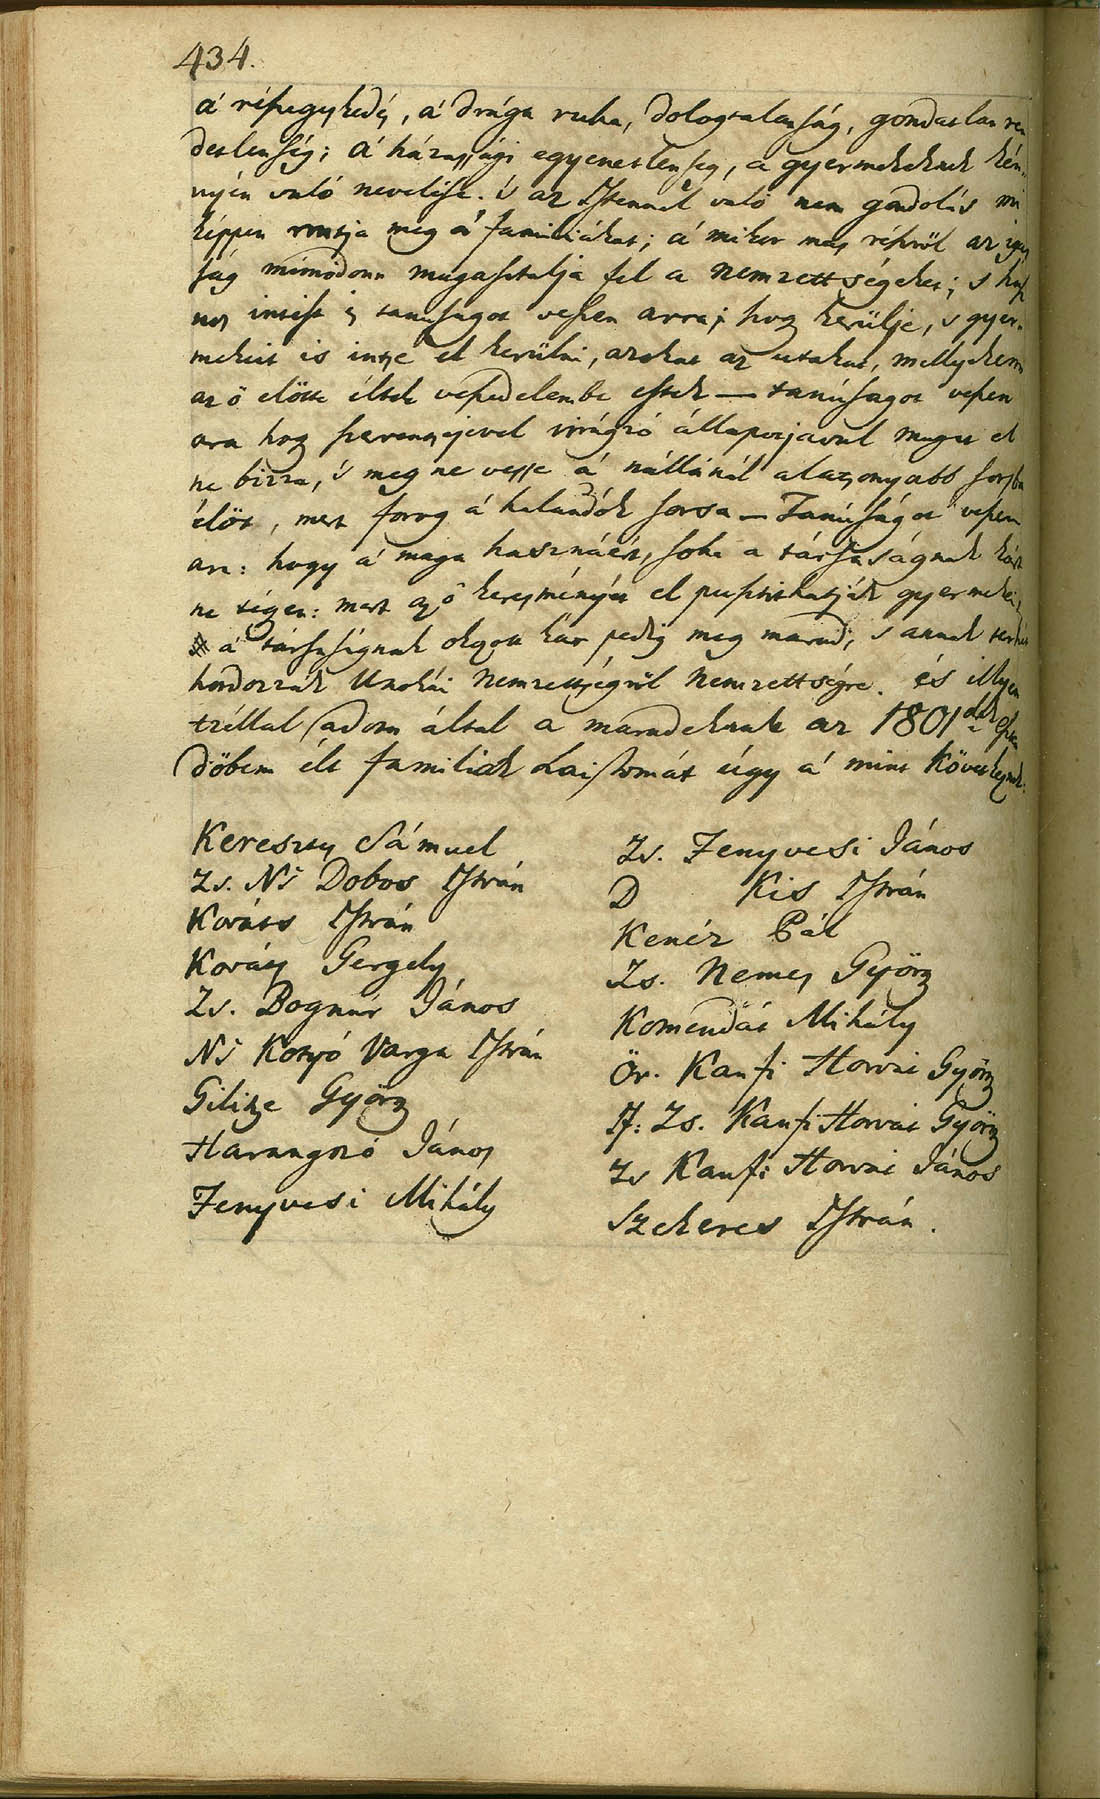 434.
á részegeskedés, á drága ruha, dologtalanság, gondatlan ren
detlenség; á házassági egyenetlenség, a gyermekeknek kén
nyén való nevelése. 's az Istennel való nem gondolás mi
képpen rontja meg á familiákat; á mikor más részről az igaz
ság mimódonn magasztalja fel a nemzettségeket; s hasz
nos intést és tanúságot vészen arra; hogy kerülje, s gyer-
mekeit is intse el kerülni, azokat az utakat, mellyekenn
az ő előtte éltek veszedelembe estek — tanúságot vészen
ara hogy szerentséjével virágzó állapotjával magát el
ne bizza, 's meg ne vesse á nállánál alatsonyabb sorsba
élőt, mert forog á halandók sorsa — Tanúságot vészen
ara: hogy á maga hasznáért, soha a társaságnak kárt
ne tégyen: mert az ő keresményét el pusztithatják gyermekei,
á társaságnak okozott kár pedig meg marad, s annak terhét
hordozzák Unokái Nemzettségről Nemzettségre. és illyen
tzéllal adom által a maradéknak az 1801dik Eszten
dőben élt familiák Laistomát úgy á mint következnek:
Kereszty Sámuel
Zs. Ns Dobos István
Kováts István
Kováts Gergely
Zs. Bognár János
Ns Kotyó Varga István
Gilitze György
Harangozó János
Fenyvesi Mihály
Zs. Fenyvesi János
D Kis István
Kenéz Pál
Zs. Nemes György
Komendát Mihály
Ör. Kanfi Horvát György
If: Zs. Kanfi Horvát György
Zs Kanfi Horvát János
Szekeres István.